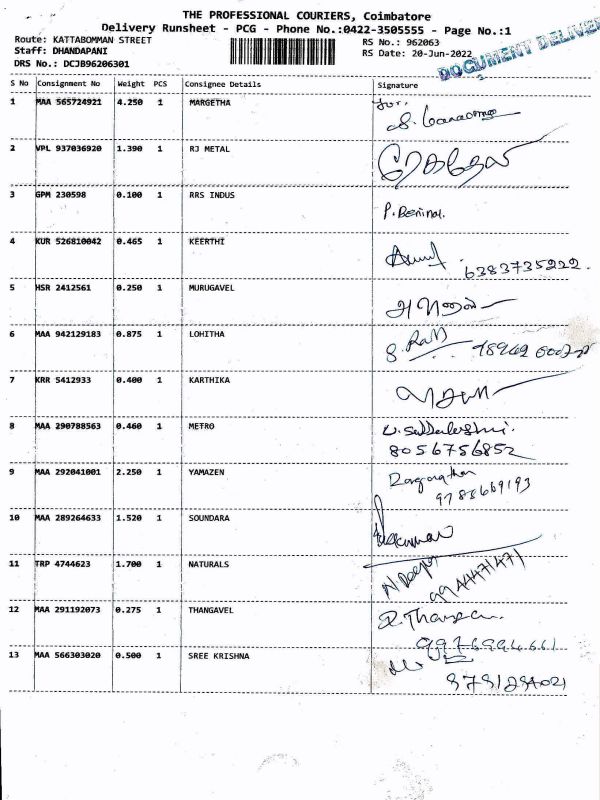 THE PROFESSIONAL COURIERS, Coimbatore
Delivery Runsheet - PCG - Phone No.:0422-3505555 - Page No.:1
Route: KATTABOMMAN STREET
Staff: DHANDAPANI
DRS No.: DCJB96206301
RS No.: 962063
RS Date: 20-Jun-2022
DOCUMENT DELIVER
S No Consignment No Weight PCS Consignee Details Signature
1 MAA 565724921 4.250 1 MARGETHA for.
2 VPL 937036920 1.390 1 RJ METAL
3 GPM 230598 0.100 1 RRS INDUS
4 KUR 526810042 0.465 1 KEERTHI
6383735222.
5 HSR 2412561 0.250 1 MURUGAVEL
6 MAA 942129183 0.875 1 LOHITHA
7 KRR 5412933 0.400 1 KARTHIKA
8 MAA 290788563 0.460 1 METRO
8056756852
9 MAA 292041001 2.250 1 YAMAZEN
9788669193
10 MAA 289264633 1.520 1 SOUNDARA
11 TRP 4744623 1.700 1 NATURALS
9944471471
12 MAA 291192073 0.275 1 THANGAVEL
9976994661
13 MAA 566303020 0.500 1 SREE KRISHNA